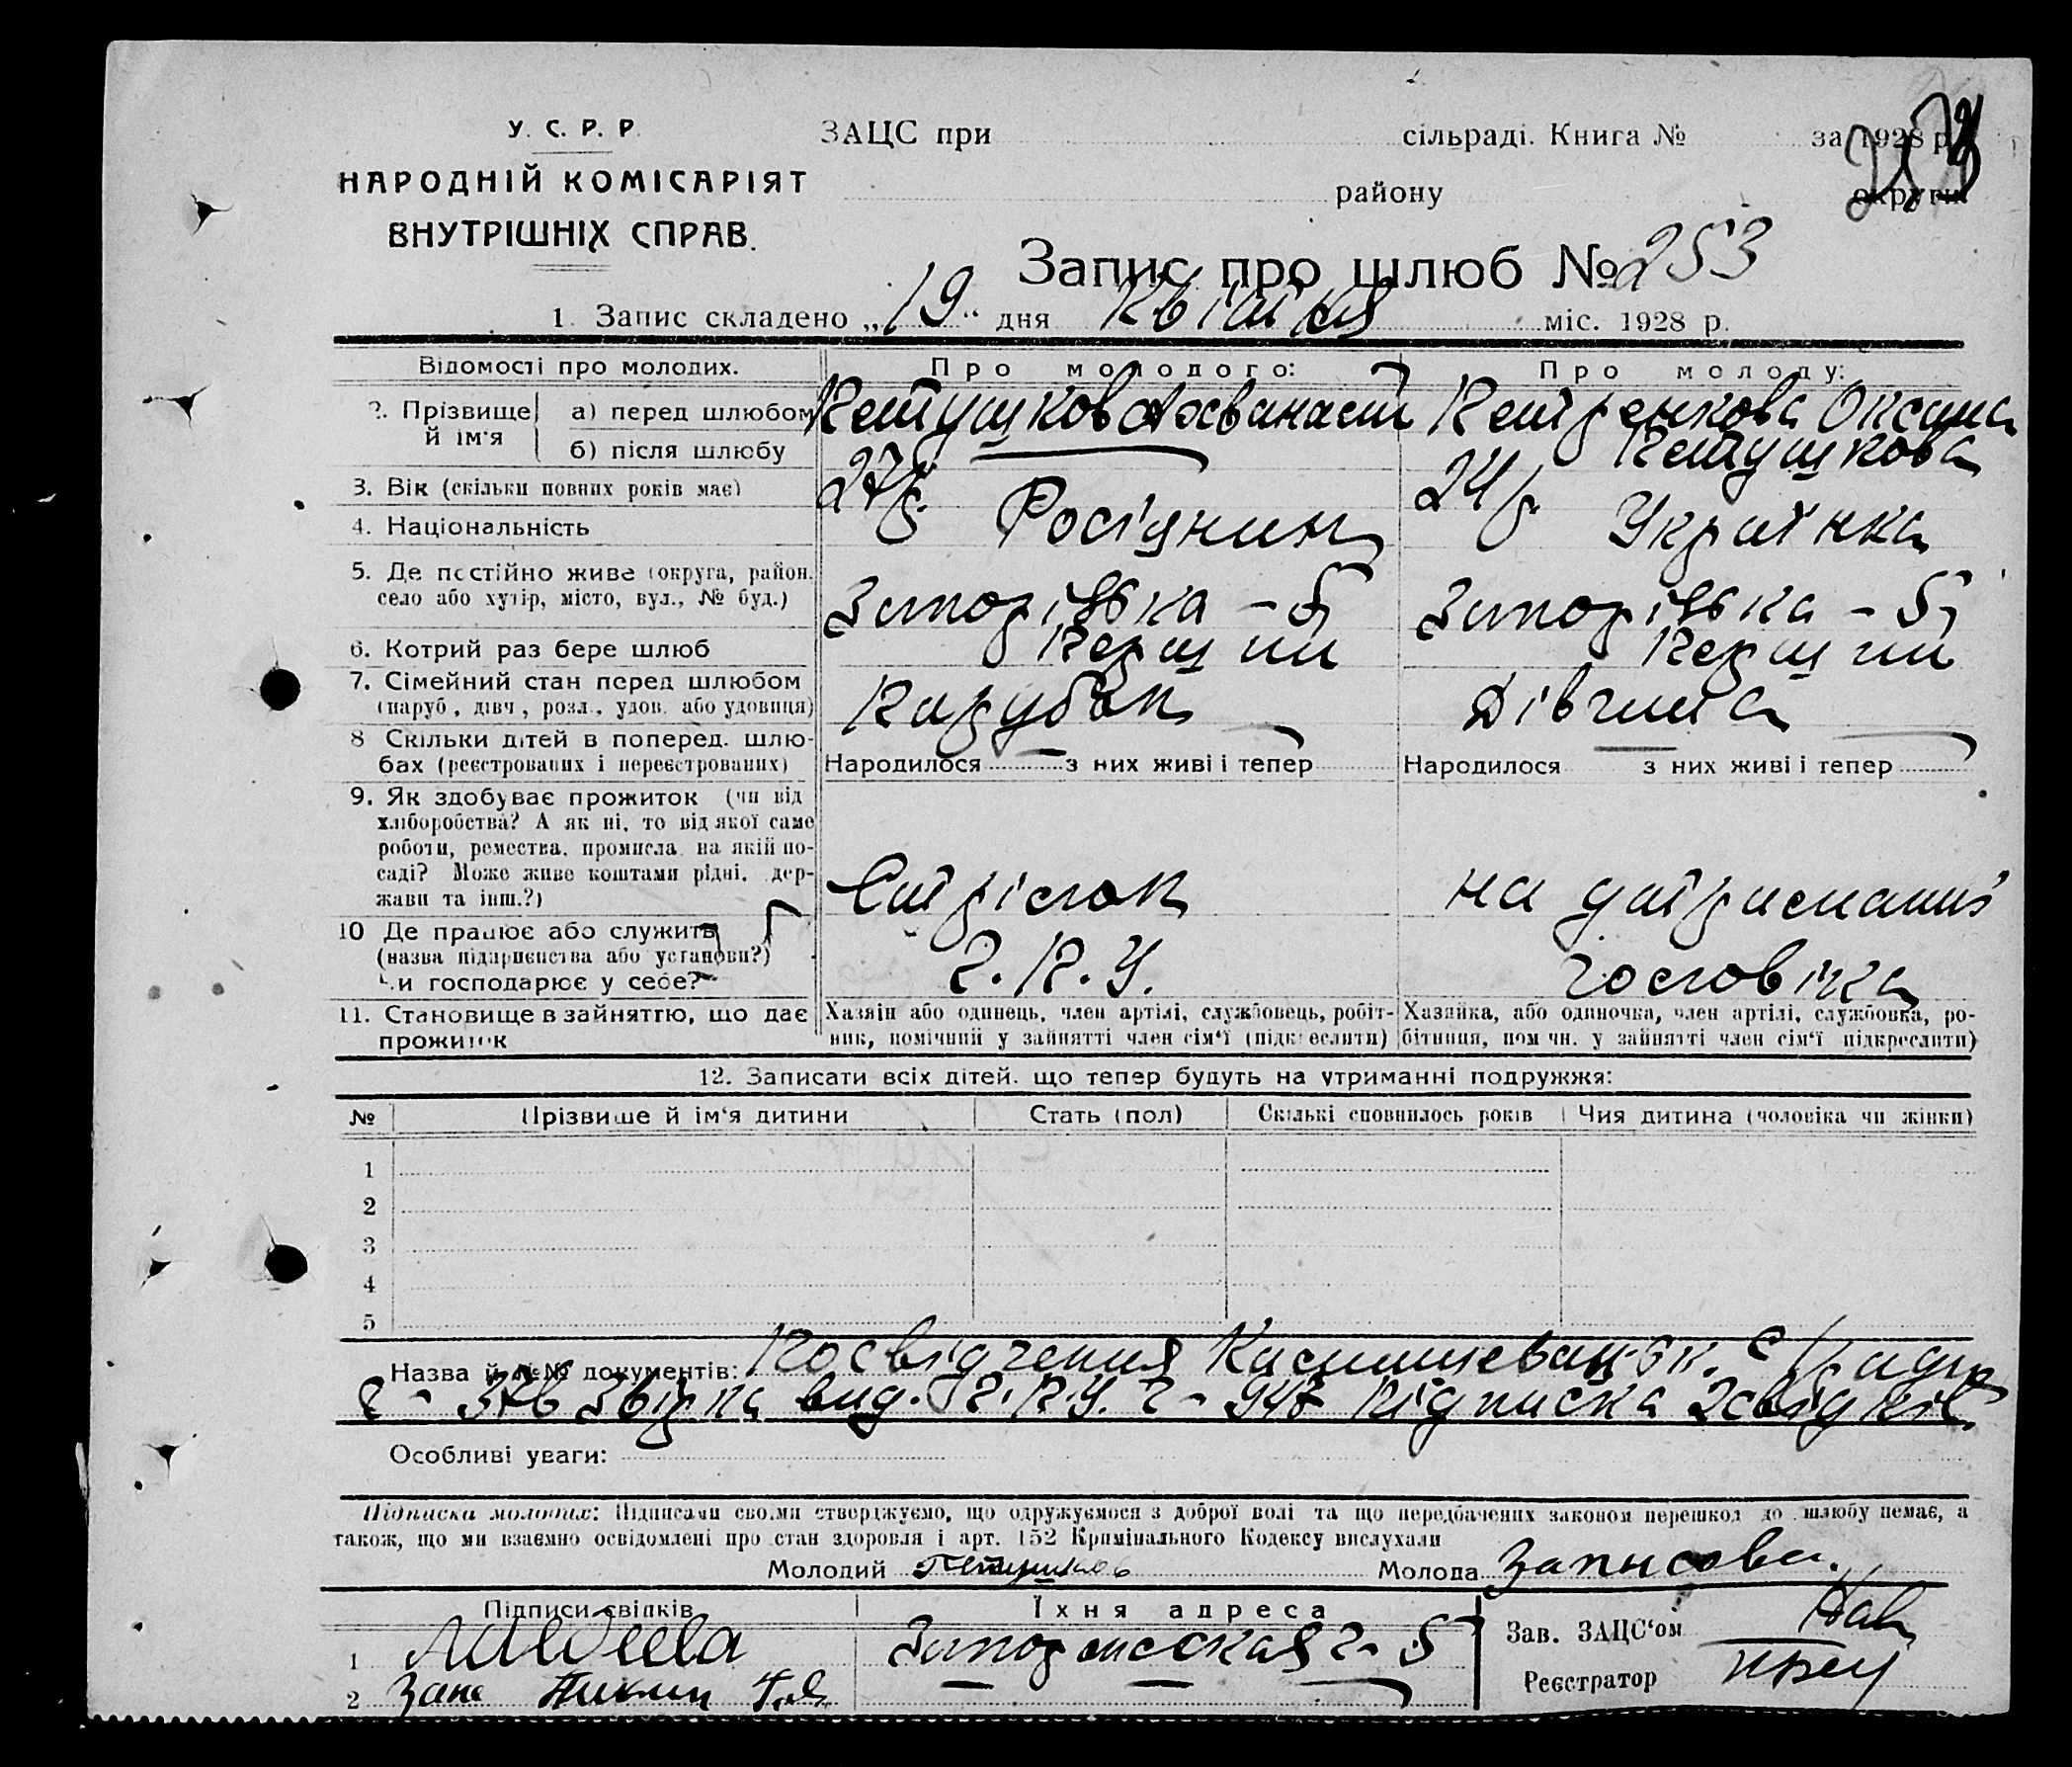 У. С. Р. Р.
НАРОДНІЙ КОМІСАРІЯТ
ВНУТРІШНІХ СПРАВ.
ЗАЦС при сільраді. Книга № за 1928 р.
району округи
Запис про шлюб № 253
1. Запис складено „19" дня Квітня міс. 1928 р.
Відомості про молодих. Про молодого: Про молоду:
2. Прізвище й ім'я
а) перед шлюбом Петушков Петренкова Оксана
б) після шлюбу Петушкова
3. Вік (скільки повних років має) 27 р. 24 р.
4. Національність Росіянин Українка
5. Де постійно живе (округа, район,
село або хутір, місто, вул., № буд.) Запорізька - 5 Запорізька - 5
6. Котрий раз бере шлюб Перший Перший
7. Сімейний стан перед шлюбом
(паруб., дівч., розл., удов. або удовиця) Парубок Дівчина
8 Скільки дітей в поперед. шлю-
бах (реєстрованих і нереєстрованих) Народилося — з них живі і тепер Народилося з них живі і тепер
9. Як здобуває прожиток (чи від
хліборобства? А як ні, то від якої саме
роботи, ремества, промисла, на якій по-
саді? Може живе коштами рідні, дер-
жави та інш.?) Стрілок на утриманні
10 Де працює або служить
(назва підприємства або установи?)
Чи господарює у себе? Г.П.У. чоловіка
11. Становище в зайняттю, що дає
прожиток
Хазяїн або одинець, член артілі, службовець, робіт-
ник, помічний у зайнятті член сім'ї (підкреслити)
Хазяйка, або одиночка, член артілі, службовка, ро-
бітниця, помічн. у зайнятті член сім'ї підкреслити)
12. Записати всіх дітей, що тепер будуть на утриманні подружжя:
№ Прізвище й ім'я дитини Стать (пол) Скількі сповнилось років Чия дитина (чоловіка чи жінки)
1
2
3
4
5
Назва й №№ документів: Посвідчення
Звірка вид. Г.П.У. Підписка свідків
Особливі уваги:
Підписка молодих: Підписами своїми стверджуємо, що одружуємося з доброї волі та що передбачених законом перешкод до шлюбу немає, а
також, що ми взаємно освідомлені про стан здоровля і арт. 152 Кримінального Кодексу вислухали
Молодий Петушков Молода
Підписи свідків Їхня адреса
1
2
Зав. ЗАЦС'ом
Реєстратор